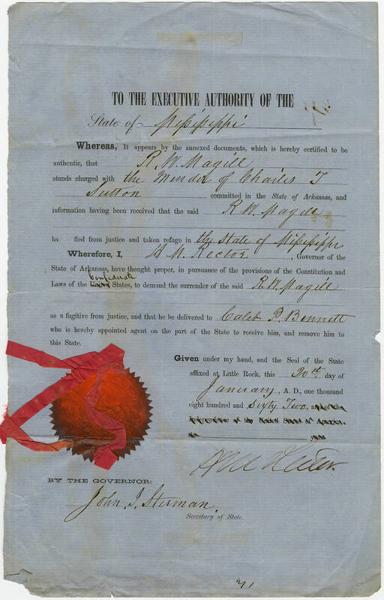 TO THE EXECUTIVE AUTHORITY OF THE
State of Mississippi
Whereas, It appears by the annexed documents, which is hereby certified to be
authentic, that R. W. Magill
stands charged with the Murder of Charles T
Sutton committed in the State of Arkansas, and
information having been received that the said R. W. Magill
ha fled from justice and taken refuge in the State of Mississippi
Wherefore, I, H. M. Rector, Governor of the
State of Arkansas, have thought proper, in pursuance of the provisions of the Constitution and
Confederate
Laws of the States, to demand the surrender of the said R. W. Magill
as a fugitive from justice, and that he be delivered to Caleb P. Bennett
who is hereby appointed agent on the part of the State to receive him, and remove him to
this State.
Given under my hand, and the Seal of the State
affixed at Little Rock, this 30th day of
January, A. D., one thousand
eight hundred and Sixty Two,
of the United States of America.
H M Rector
BY THE GOVERNOR:
John I. Stirman,
Secretary of State.